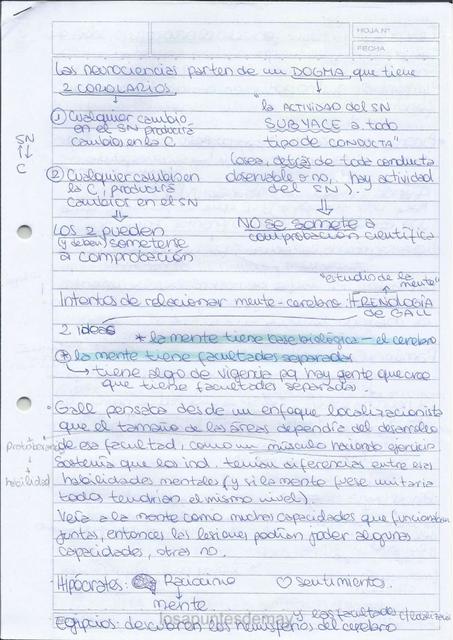 HOJA Nº
FECHA
Las neurociencias parten de un DOGMA, que tiene
2 COROLARIOS
"la ACTIVIDAD del SN
SUBYACE a todo
tipo de CONDUCTA"
(osea, detrás de toda conducta
observable o no, hay actividad
del SN).
NO se somete a
comprobación científica
① Cualquier cambio
en el SN producirá
cambios en la C
SN
C
② Cualquier cambio en
la C, producirá
cambios en el SN
LOS 2 pueden
(y deben) someterse
a comprobación
"estudio de la
mente"
Intentos de relacionar mente-cerebro: FRENOLOGIA
de GALL
2 ideas
* la mente tiene base biológica - el cerebro
* la mente tiene facultades separadas
tiene algo de vigencia pq hay gente que cree
que tiene facultades separadas.
• Gall pensaba desde un enfoque localizacionista
que el tamaño de las áreas dependía del desarrollo
de esa facultad, como un músculo haciendo ejercicio
habilidad
Sostenía que los ind. tenían diferencias entre esas
habilidades mentales (y si la mente fuese unitaria
todos tendrían el mismo nivel).
Veía a la mente como muchas capacidades que funcionaban
juntas, entonces las lesiones podían joder algunas
capacidades, otras no.
• Hipócrates: Raciocinio ♡ sentimientos.
mente
y las facultades
Egipcios: descubren los hemisferios del cerebro
losapuntesdemay